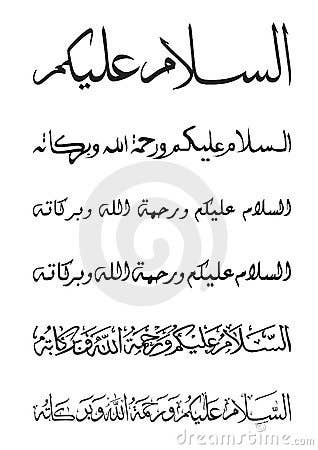 السلام عليكم
السلام عليكم ورحمة الله وبركاته
السلام عليكم ورحمة الله وبركاته
السلام عليكم ورحمة الله وبركاته
السَّلَامُ عَلَيْكُمْ وَرَحْمَةُ اللهِ وَبَرَكَاتُهُ
السَّلَامُ عَلَيْكُمْ وَرَحْمَةُ اللهِ وَبَرَكَاتُهُ
dreamstime.com